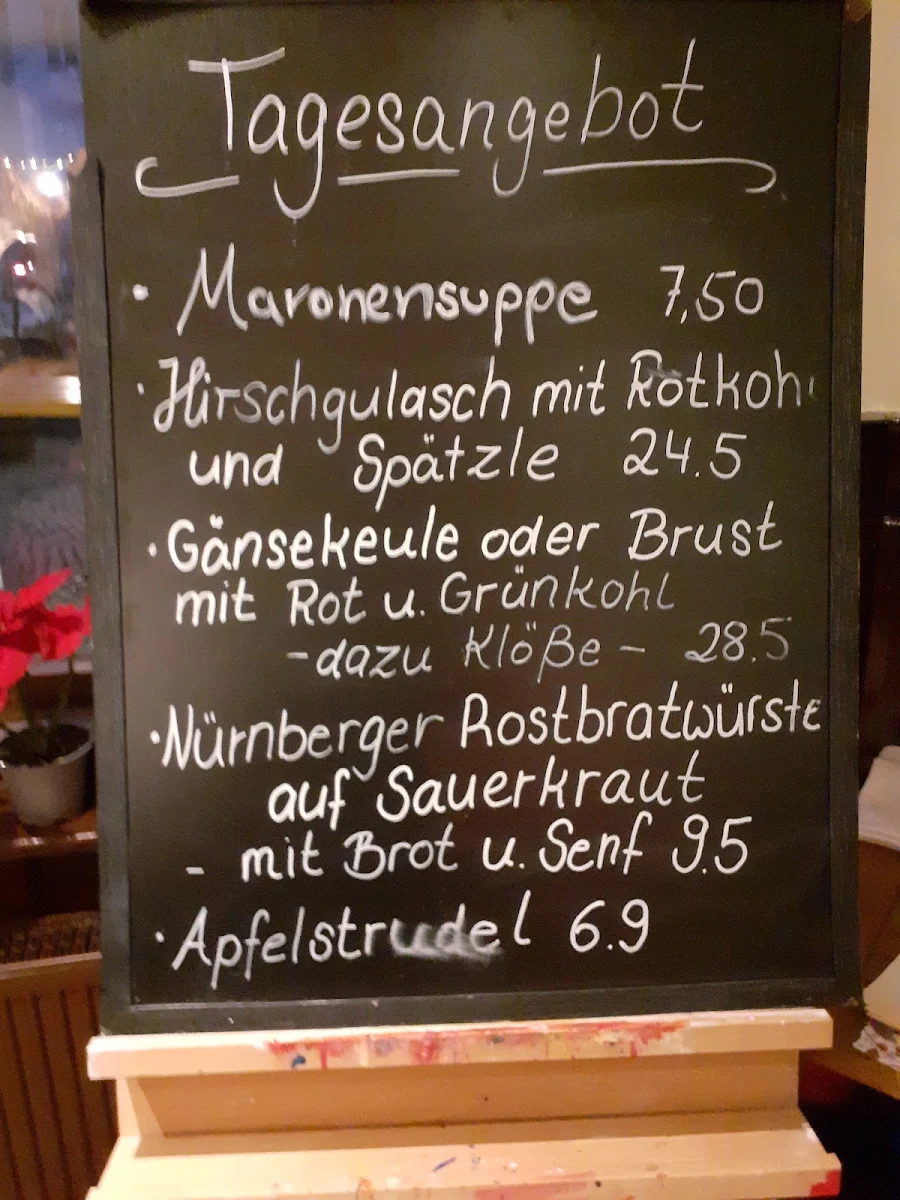 Tagesangebot
· Maronensuppe 7,50
· Hirschgulasch mit Rotkohl
und Spätzle 24.5
· Gänsekeule oder Brust
mit Rot u. Grünkohl
- dazu Klöße - 28.5
· Nürnberger Rostbratwürste
auf Sauerkraut
- mit Brot u. Senf 9.5
· Apfelstrudel 6.9